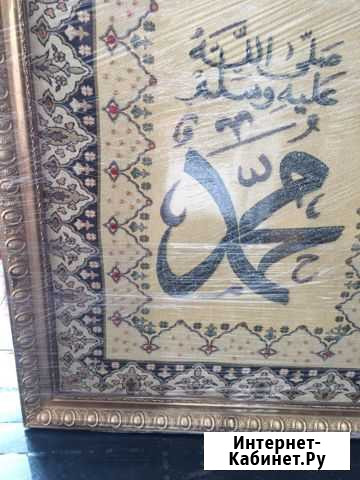 صلى الله
عليه وسلم
محمد
Интернет-
Кабинет.Ру